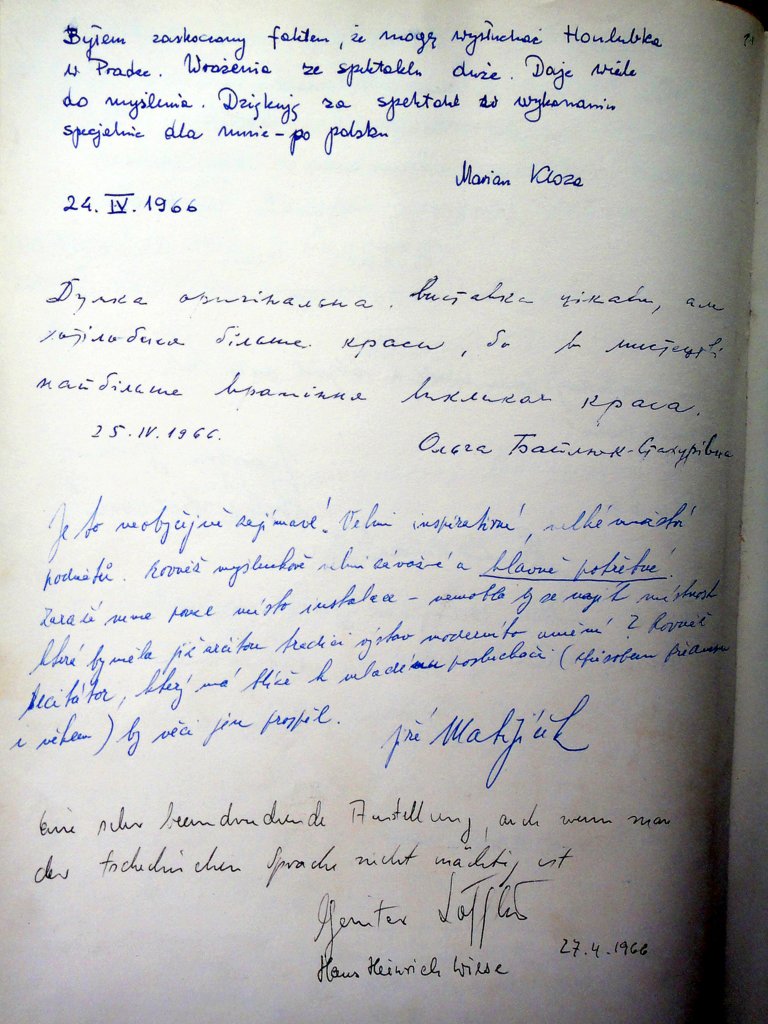 Byłem zaskoczony faktem, że mogę wysłuchać Houlubka
w Pradze. Wrażenia ze spektaklu duże. Daje wiele
do myślenia. Dziękuję za spektakl w wykonaniu
specjalnie dla mnie – po polsku
Marian Kloza
24. IV. 1966
Думка оригінальна. Виставка цікава, але
хотілобися більше краси, бо в мистецтві
найбільше враження викликає краса.
25. IV. 1966.
Ольга
Je to neobyčejně zajímavé! Velmi inspirativní, velké množství
podnětů. Rovněž myšlenkově velmi závažné a hlavně potřebné!
Zaráží mne pouze místo instalace – nemohla by se najít místnost
která by měla již určitou tradici výstav moderního umění? Rovněž
recitátor, který má blíže k mladému posluchači (způsobem přednesu
i věkem) by věci jen prospěl.
Jiří
Eine sehr beeindruckende Ausstellung, auch wenn man
der tschechischen Sprache nicht mächtig ist
Löffler
Hans Heinrich Wiese
27.4.1966